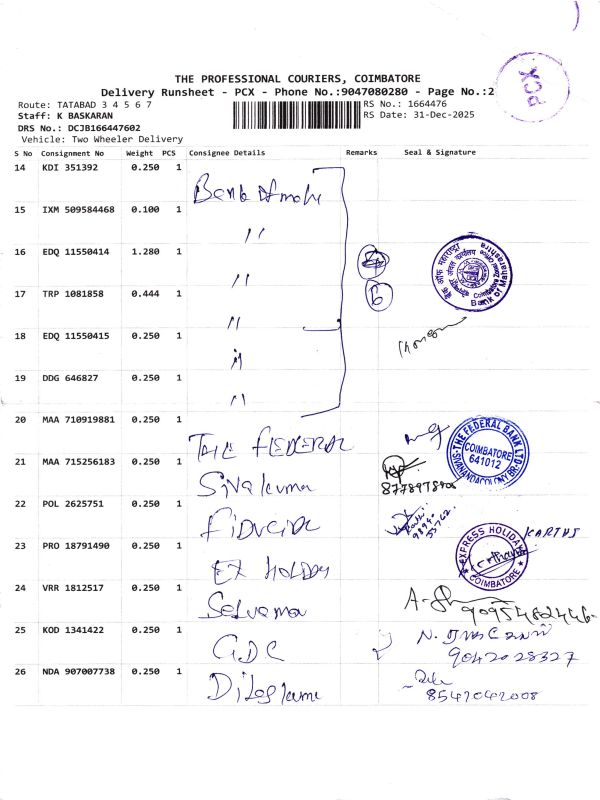 PCX
THE PROFESSIONAL COURIERS, COIMBATORE
Delivery Runsheet - PCX - Phone No.:9047080280 - Page No.:2
Route: TATABAD 3 4 5 6 7
RS No.: 1664476
Staff: K BASKARAN
RS Date: 31-Dec-2025
DRS No.: DCJB166447602
Vehicle: Two Wheeler Delivery
S No Consignment No Weight PCS Consignee Details Remarks Seal & Signature
14 KDI 351392 0.250 1 Bank of mahe
15 IXM 509584468 0.100 1 "
16 EDQ 11550414 1.280 1 "
17 TRP 1081858 0.444 1 " 6
बैंक ऑफ महाराष्ट्र
Coimbatore Zonal Office
Bank of Maharashtra
18 EDQ 11550415 0.250 1 "
19 DDG 646827 0.250 1 "
20 MAA 710919881 0.250 1 THE FEDERAL
THE FEDERAL BANK LTD
COIMBATORE
641012
SIVANANDACOLONY BR
21 MAA 715256183 0.250 1 Sivakuma
22 POL 2625751 0.250 1
23 PRO 18791490 0.250 1 EX HOLIDAY
EXPRESS HOLIDAYS
COIMBATORE
24 VRR 1812517 0.250 1 Selvama
9095482446
25 KOD 1341422 0.250 1 GDC
9042028327
26 NDA 907007738 0.250 1
8547042008